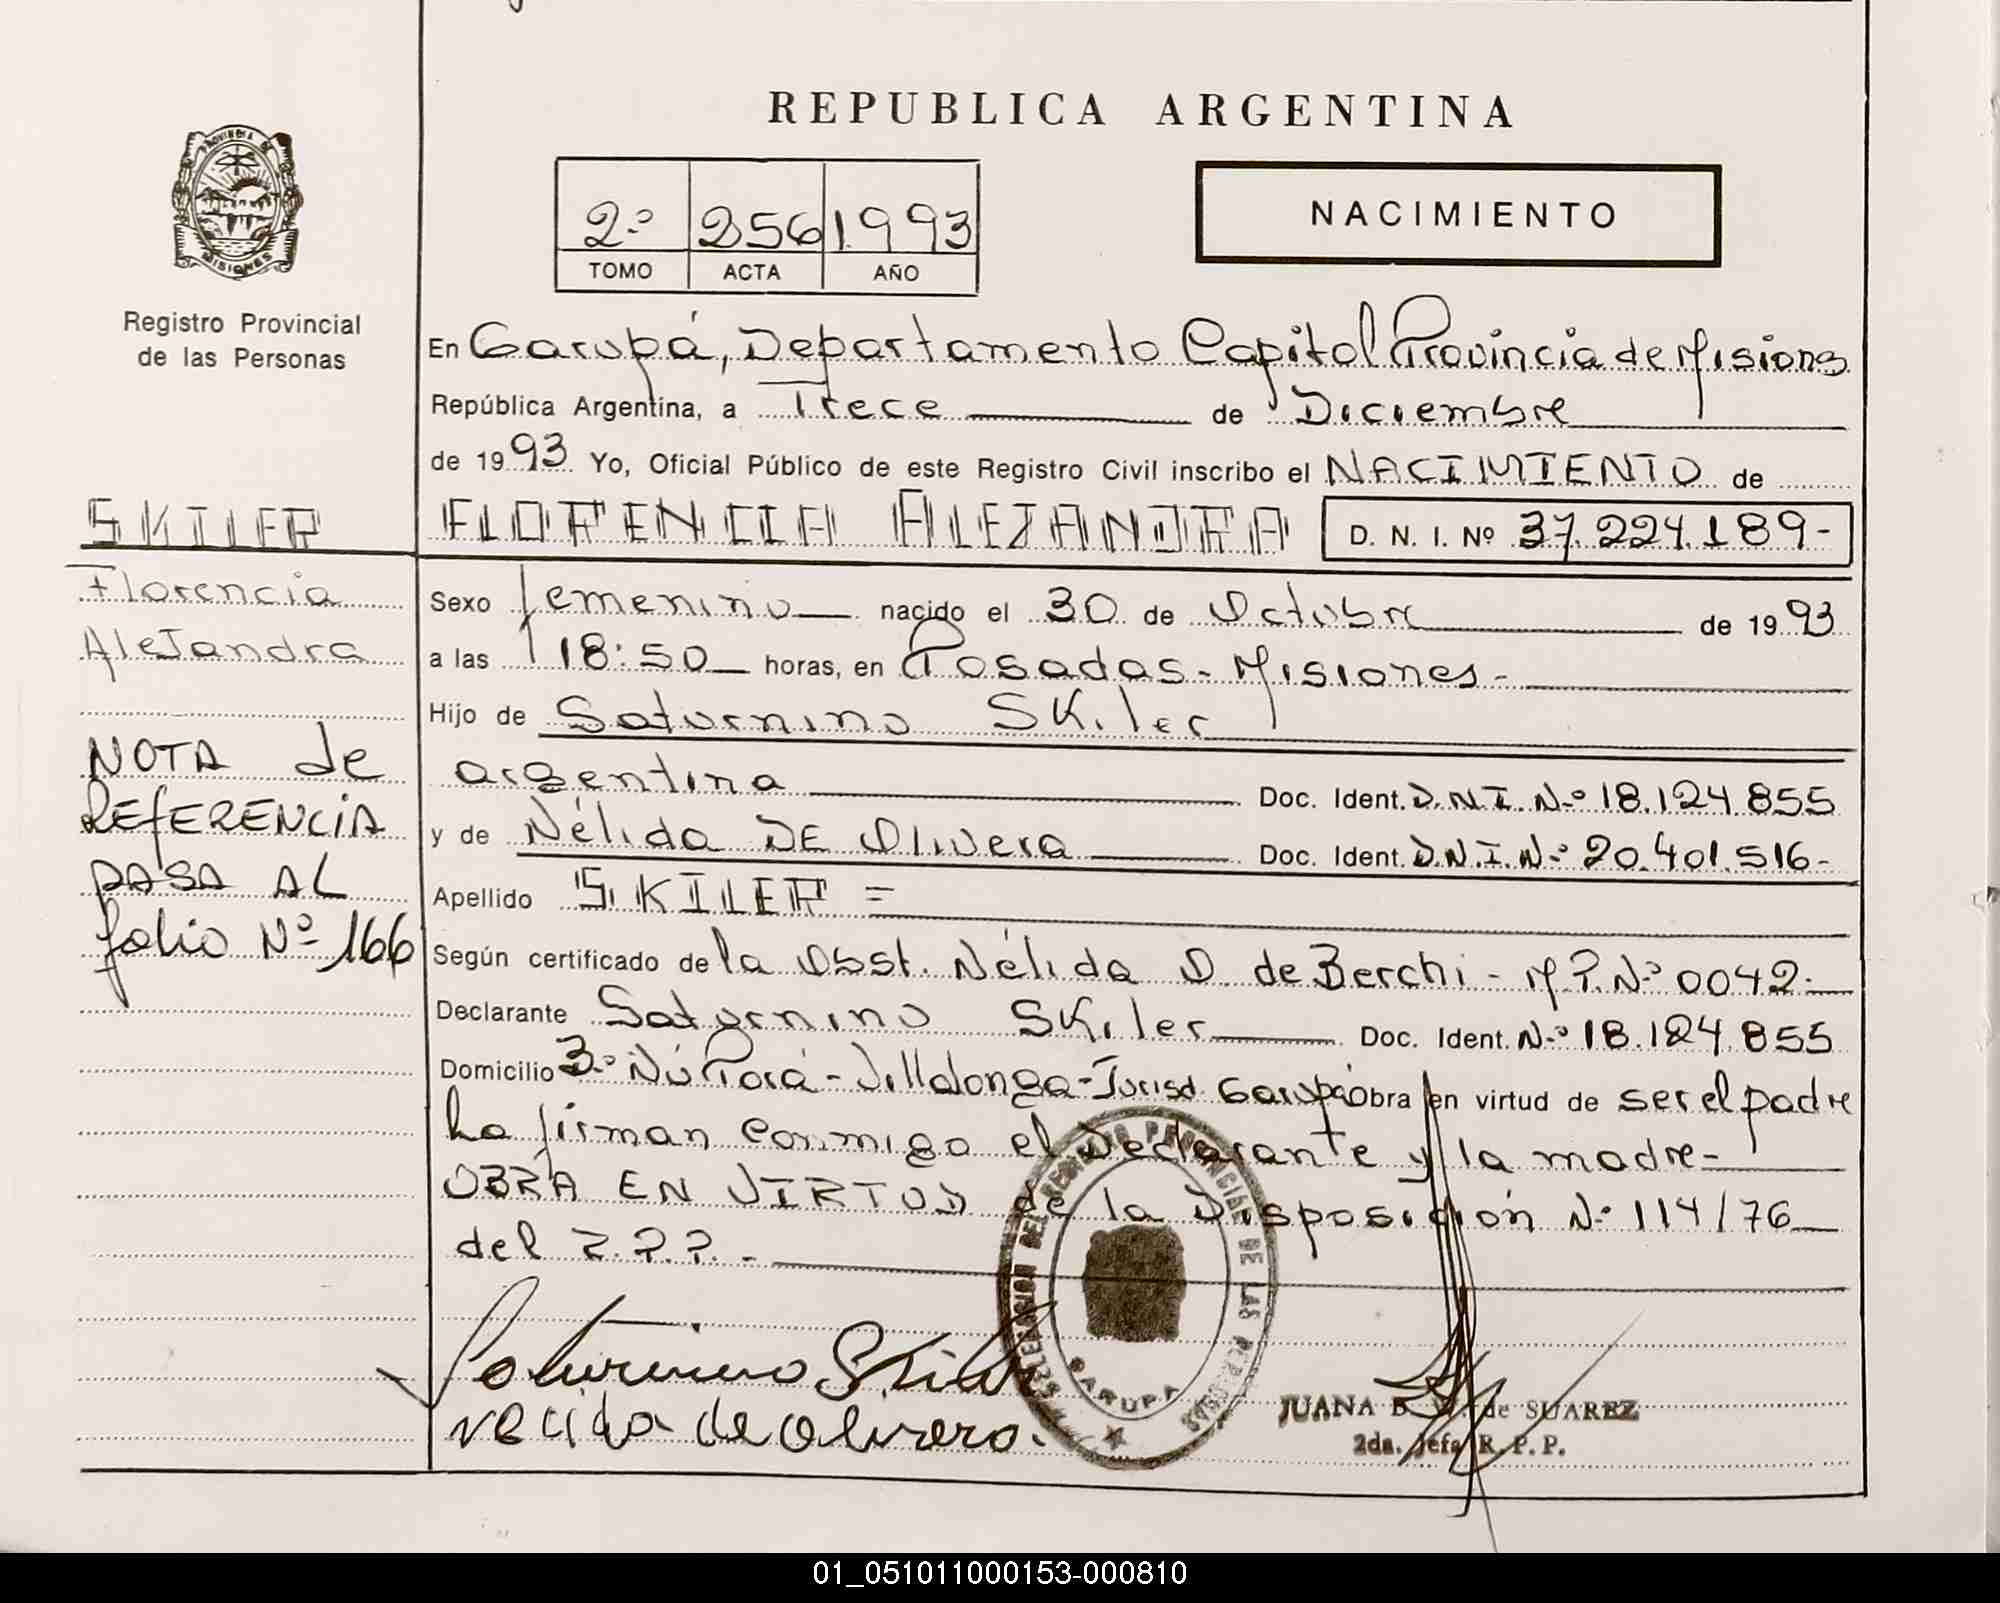 REPUBLICA ARGENTINA
PROVINCIA DE
MISIONES
Registro Provincial
de las Personas
2º 256 1993
TOMO ACTA AÑO
NACIMIENTO
En Garupá, Departamento Capital Provincia de Misiones
República Argentina, a Trece de Diciembre
de 1993 Yo, Oficial Público de este Registro Civil inscribo el NACIMIENTO de
SKILER
FLORENCIA ALEJANDRA D. N. I. Nº 37.224.189-
Florencia
Alejandra
Sexo femenino nacido el 30 de Octubre de 1993
a las 18:50 horas, en Posadas - Misiones -
Hijo de Saturnino SKiler
argentina Doc. Ident. D.N.I. Nº 18.124.855
y de Nélida DE Olivera Doc. Ident. D.N.I. Nº 20.401.516-
Apellido SKILER =
NOTA de
REFERENCIA
PASA AL
folio Nº 166
Según certificado de la Obst. Nélida O. de Berchi - M.P. Nº 0042-
Declarante Saturnino SKiler Doc. Ident. Nº 18.124.855
Domicilio 3º Ñú Porá - Villalonga - Jurisd. Garupá Obra en virtud de ser el padre
La firman conmigo el Declarante y la madre-
OBRA EN VIRTUD de la Disposición Nº 114/76
del R.P.P. -
Saturnino Skiler
nelida de olivera.
DELEGACION DEL REGISTRO PROVINCIAL DE LAS PERSONAS
GARUPA
JUANA de SUAREZ
2da. Jefa R.P.P.
01_051011000153-000810